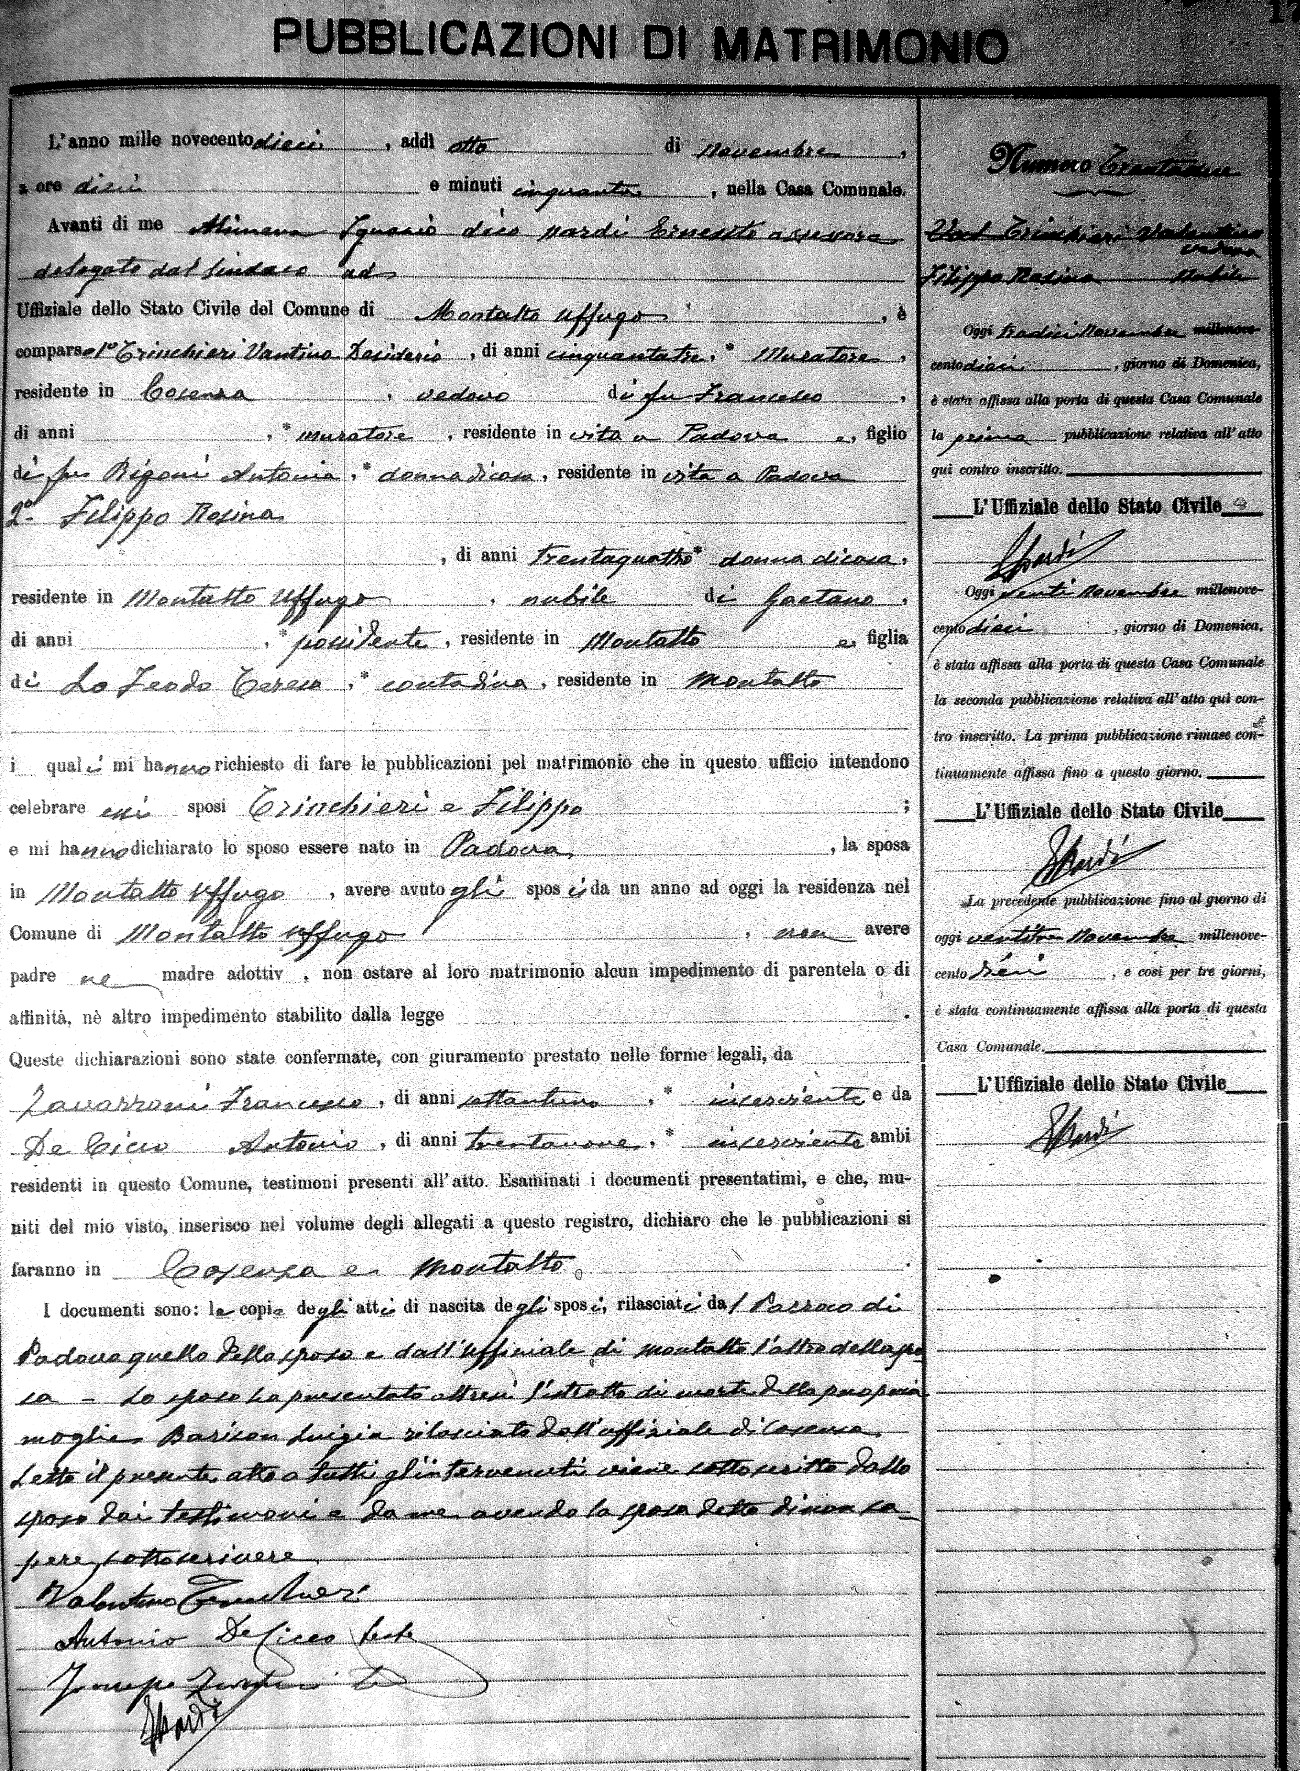 PUBBLICAZIONI DI MATRIMONIO
17
L'anno mille novecento dieci, addì otto di Novembre,
a ore dieci e minuti cinquanta, nella Casa Comunale.
Avanti di me Ignazio dico Nardi Ernesto assessore
delegato dal Sindaco ad
Uffiziale dello Stato Civile del Comune di Montalto Uffugo, è
comparso 1° Trinchieri Desiderio, di anni cinquantatre, * Muratore,
residente in Cosenza, vedovo di fu Francesco,
di anni , * muratore, residente in vita a Padova e, figlio
di fu Bigoni Antonia, * donna di casa, residente in vita a Padova
2° Filippo Rosina
, di anni trentaquattro * donna di casa,
residente in Montalto Uffugo, nubile di Gaetano,
di anni , * possidente, residente in Montalto e, figlia
di Lo Feodo Teresa, * contadina, residente in Montalto
i quali mi hanno richiesto di fare le pubblicazioni pel matrimonio che in questo ufficio intendono
celebrare essi sposi Trinchieri e Filippo ;
e mi hanno dichiarato lo sposo essere nato in Padova, la sposa
in Montalto Uffugo, avere avuto gli sposi da un anno ad oggi la residenza nel
Comune di Montalto Uffugo, non avere
padre ne madre adottiv , non ostare al loro matrimonio alcun impedimento di parentela o di
affinità, nè altro impedimento stabilito dalla legge .
Queste dichiarazioni sono state confermate, con giuramento prestato nelle forme legali, da
Zavarroni Francesco, di anni settantuno, * inserviente e da
De Cicco Antonio, di anni trentanove, * inserviente ambi
residenti in questo Comune, testimoni presenti all'atto. Esaminati i documenti presentatimi, e che, mu-
niti del mio visto, inserisco nel volume degli allegati a questo registro, dichiaro che le pubblicazioni si
faranno in Cosenza e Montalto.
I documenti sono: le copie degli atti di nascita degli sposi, rilasciati dal Parroco di
Padova quello dello sposo e dall'Uffiziale di Montalto l'altro della spo
sa - Lo sposo ha presentato altresi l'estratto di morte della propria
moglie Barison Luigia rilasciato dall'uffiziale di Cosenza.
Letto il presente atto a tutti gl'intervenuti viene sottoscritto dallo
sposo dai testimoni e da me avendo la sposa detto di non sa-
pere sottoscrivere
Valentino Trinchieri
Antonio De Cicco teste
ENardi
Numero Trentadue
Trinchieri Valentino
vedovo
Filippo Rosina nubile
Oggi tredici Novembre millenove-
cento dieci, giorno di Domenica,
è stata affissa alla porta di questa Casa Comunale
la prima pubblicazione relativa all'atto
qui contro inscritto.
L'Uffiziale dello Stato Civile
ENardi
Oggi venti Novembre millenove-
cento dieci, giorno di Domenica,
è stata affissa alla porta di questa Casa Comunale
la seconda pubblicazione relativa all'atto qui con-
tro inscritto. La prima pubblicazione rimase con-
tinuamente affissa fino a questo giorno.
L'Uffiziale dello Stato Civile
ENardi
La precedente pubblicazione fino al giorno di
oggi ventitre Novembre millenove-
cento dieci, e così per tre giorni,
è stata continuamente affissa alla porta di questa
Casa Comunale.
L'Uffiziale dello Stato Civile
ENardi